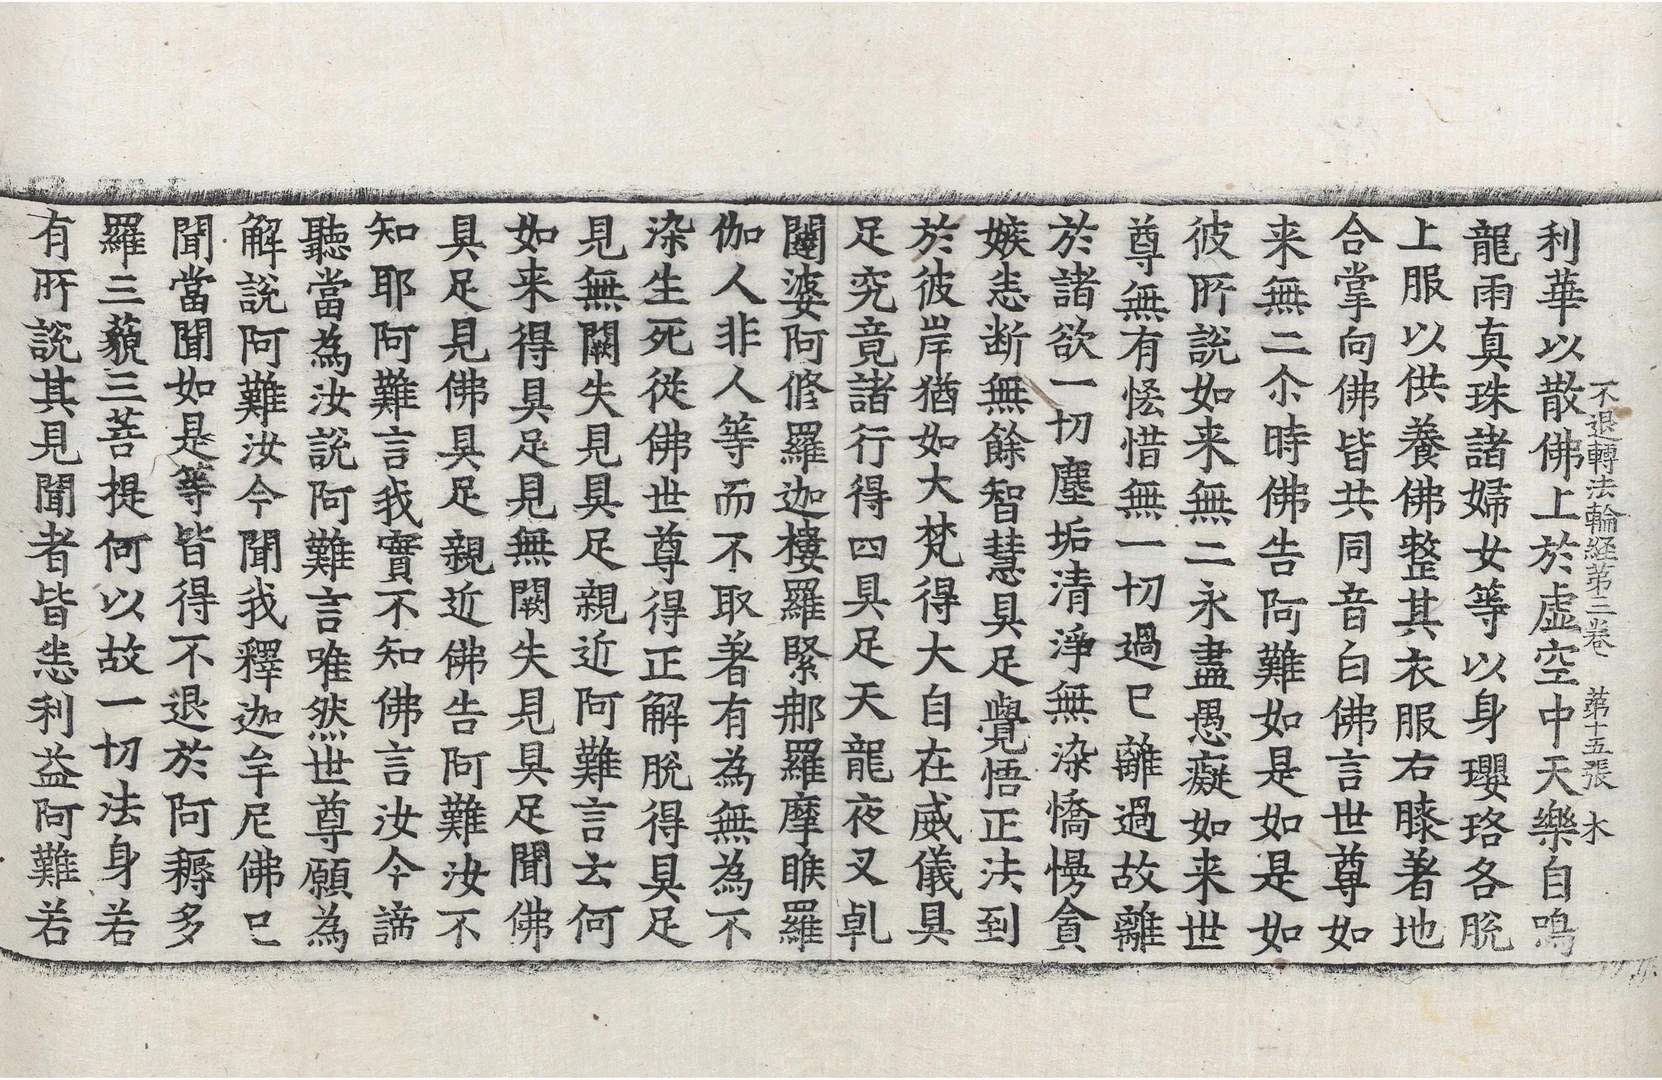 不退轉法輪経苐三巻 苐十五張 木
利華以散佛上於虚空中天樂自鳴
龍雨真珠諸婦女等以身瓔珞各脫
上服以供養佛整其衣服右膝著地
合掌向佛皆共同音白佛言世尊如
来無二尒時佛告阿難如是如是如
彼所說如来無二永盡愚癡如来世
尊無有恡惜無一切過已離過故離
於諸欲一切塵垢清淨無染憍慢貪
嫉恚断無餘智慧具足覺悟正法到
於彼岸猶如大梵得大自在威儀具
足究竟諸行得四具足天龍夜叉乹
闥婆阿修羅迦樓羅緊那羅摩睺羅
伽人非人等而不取著有為無為不
染生死從佛世尊得正解脫得具足
見無闕失見具足親近阿難言云何
如来得具足見無闕失見具足聞佛
具足見佛具足親近佛告阿難汝不
知耶阿難言我實不知佛言汝今諦
聽當為汝說阿難言唯然世尊願為
解說阿難汝今聞我釋迦牟尼佛已
聞當聞如是等皆得不退於阿耨多
羅三藐三菩提何以故一切法身若
有所說其見聞者皆悉利益阿難若